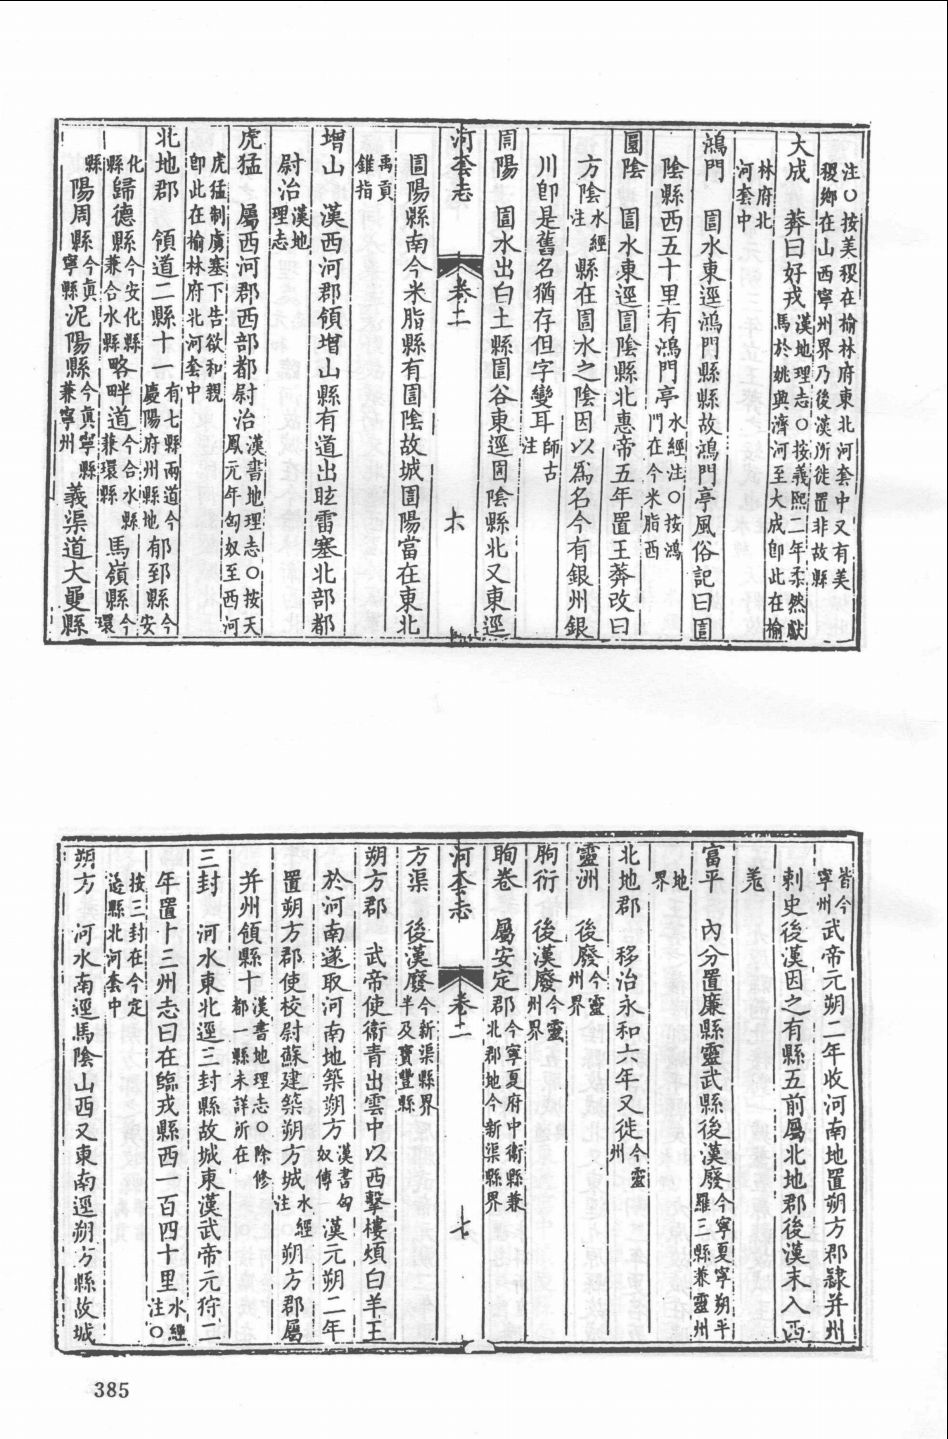 注○按美稷在榆林府東北河套中又有美
稷鄉在山西寧州界乃後漢所徙置非故縣
大成　莽曰好戎漢地理志○按義熙二年柔然獻
馬於姚興濟河至大成卽此在榆
林府北
河套中
鴻門　圁水東逕鴻門縣縣故鴻門亭風俗記曰圁
陰縣西五十里有鴻門亭水經注○按鴻
門在今米脂西
圁陰　圁水東逕圁陰縣北惠帝五年置王莽改曰
方陰水經
注縣在圁水之陰因以爲名今有銀州銀
川卽是舊名猶存但字變耳師古
注
圁陽　圁水出白土縣圁谷東逕圁陰縣北又東逕
河套志　卷二　六
圁陽縣南今米脂縣有圁陰故城圁陽當在東北
禹貢
錐指
增山　漢西河郡領增山縣有道出眩雷塞北部都
尉治漢地
理志
虎猛　屬西河郡西部都尉治漢書地理志○按天
鳳元年匈奴至西河
虎猛制虜塞下告欲和親
卽此在榆林府北河套中
北地郡　領道二縣十一有七縣兩道今
慶陽府州縣地郁郅縣今
安
化
縣歸德縣今安化縣
兼合水縣略畔道今合水縣
兼環縣馬嶺縣今
環
縣陽周縣今真
寧縣泥陽縣今真寧縣
兼寧州義渠道大㚅縣
皆今
寧州武帝元朔二年收河南地置朔方郡隸并州
刺史後漢因之有縣五前屬北地郡後漢末入西
羌
富平　內分置廉縣靈武縣後漢廢今寧夏寧朔平
羅三縣兼靈州
地
界
北地郡　移治永和六年又徙今靈
州
靈洲　後廢今靈
州界
朐衍　後漢廢今靈
州界
眴卷　屬安定郡今寧夏府中衞縣兼
北郡地今新渠縣界
河套志　卷二　七
方渠　後漢廢今新渠縣界
半及寶豐縣
朔方郡　武帝使衞青出雲中以西擊樓煩白羊王
於河南遂取河南地築朔方漢書匈
奴傳漢元朔二年
置朔方郡使校尉蘇建築朔方城水經
注朔方郡屬
并州領縣十漢書地理志○除修
都一縣未詳所在
三封　河水東北逕三封縣故城東漢武帝元狩二
年置十三州志曰在臨戎縣西一百四十里水經
注○
按三封在今定
邊縣北河套中
朔方　河水南逕馬陰山西又東南逕朔方縣故城
385